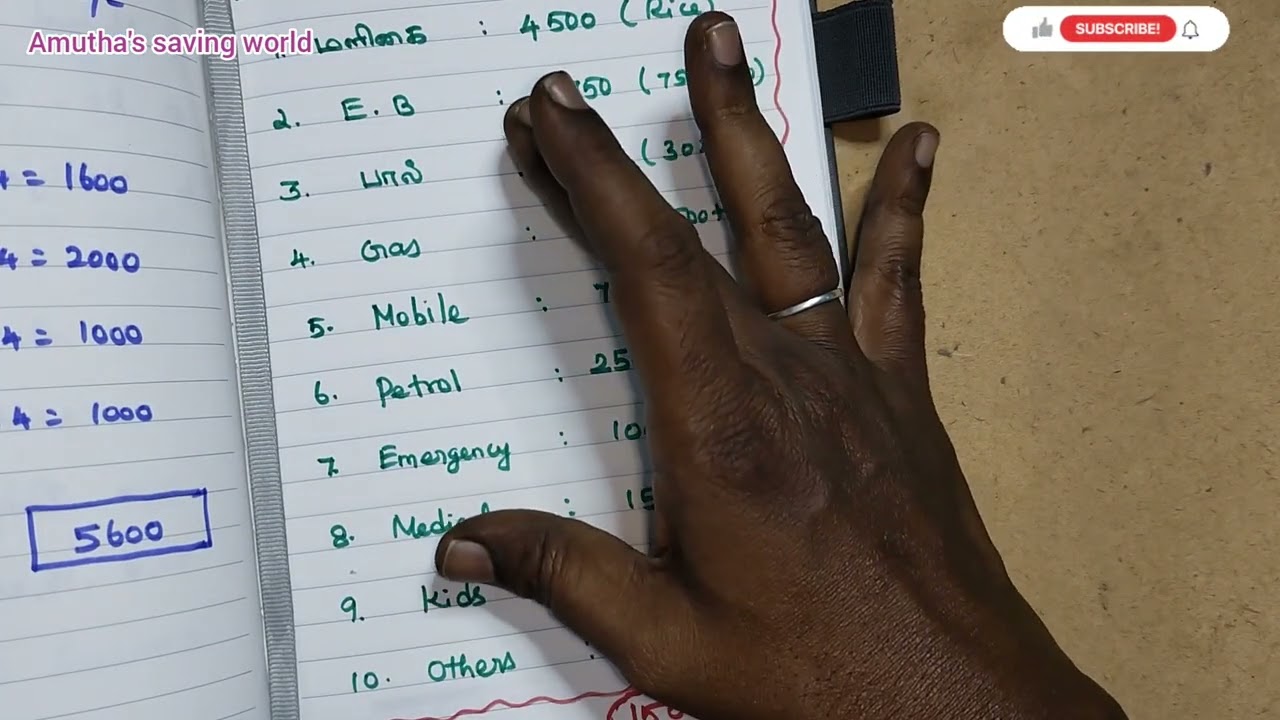 Amutha's saving world
SUBSCRIBE!
4 = 1600
4 = 2000
4 = 1000
4 = 1000
5600
மளிகை : 4500 (Rice)
2. E.B : 50 (75
3. பால் (30
4. Gas :
5. Mobile : 7
6. Petrol : 25
7. Emergency : 10
8. Medical : 15
9. Kids
10. Others :
150